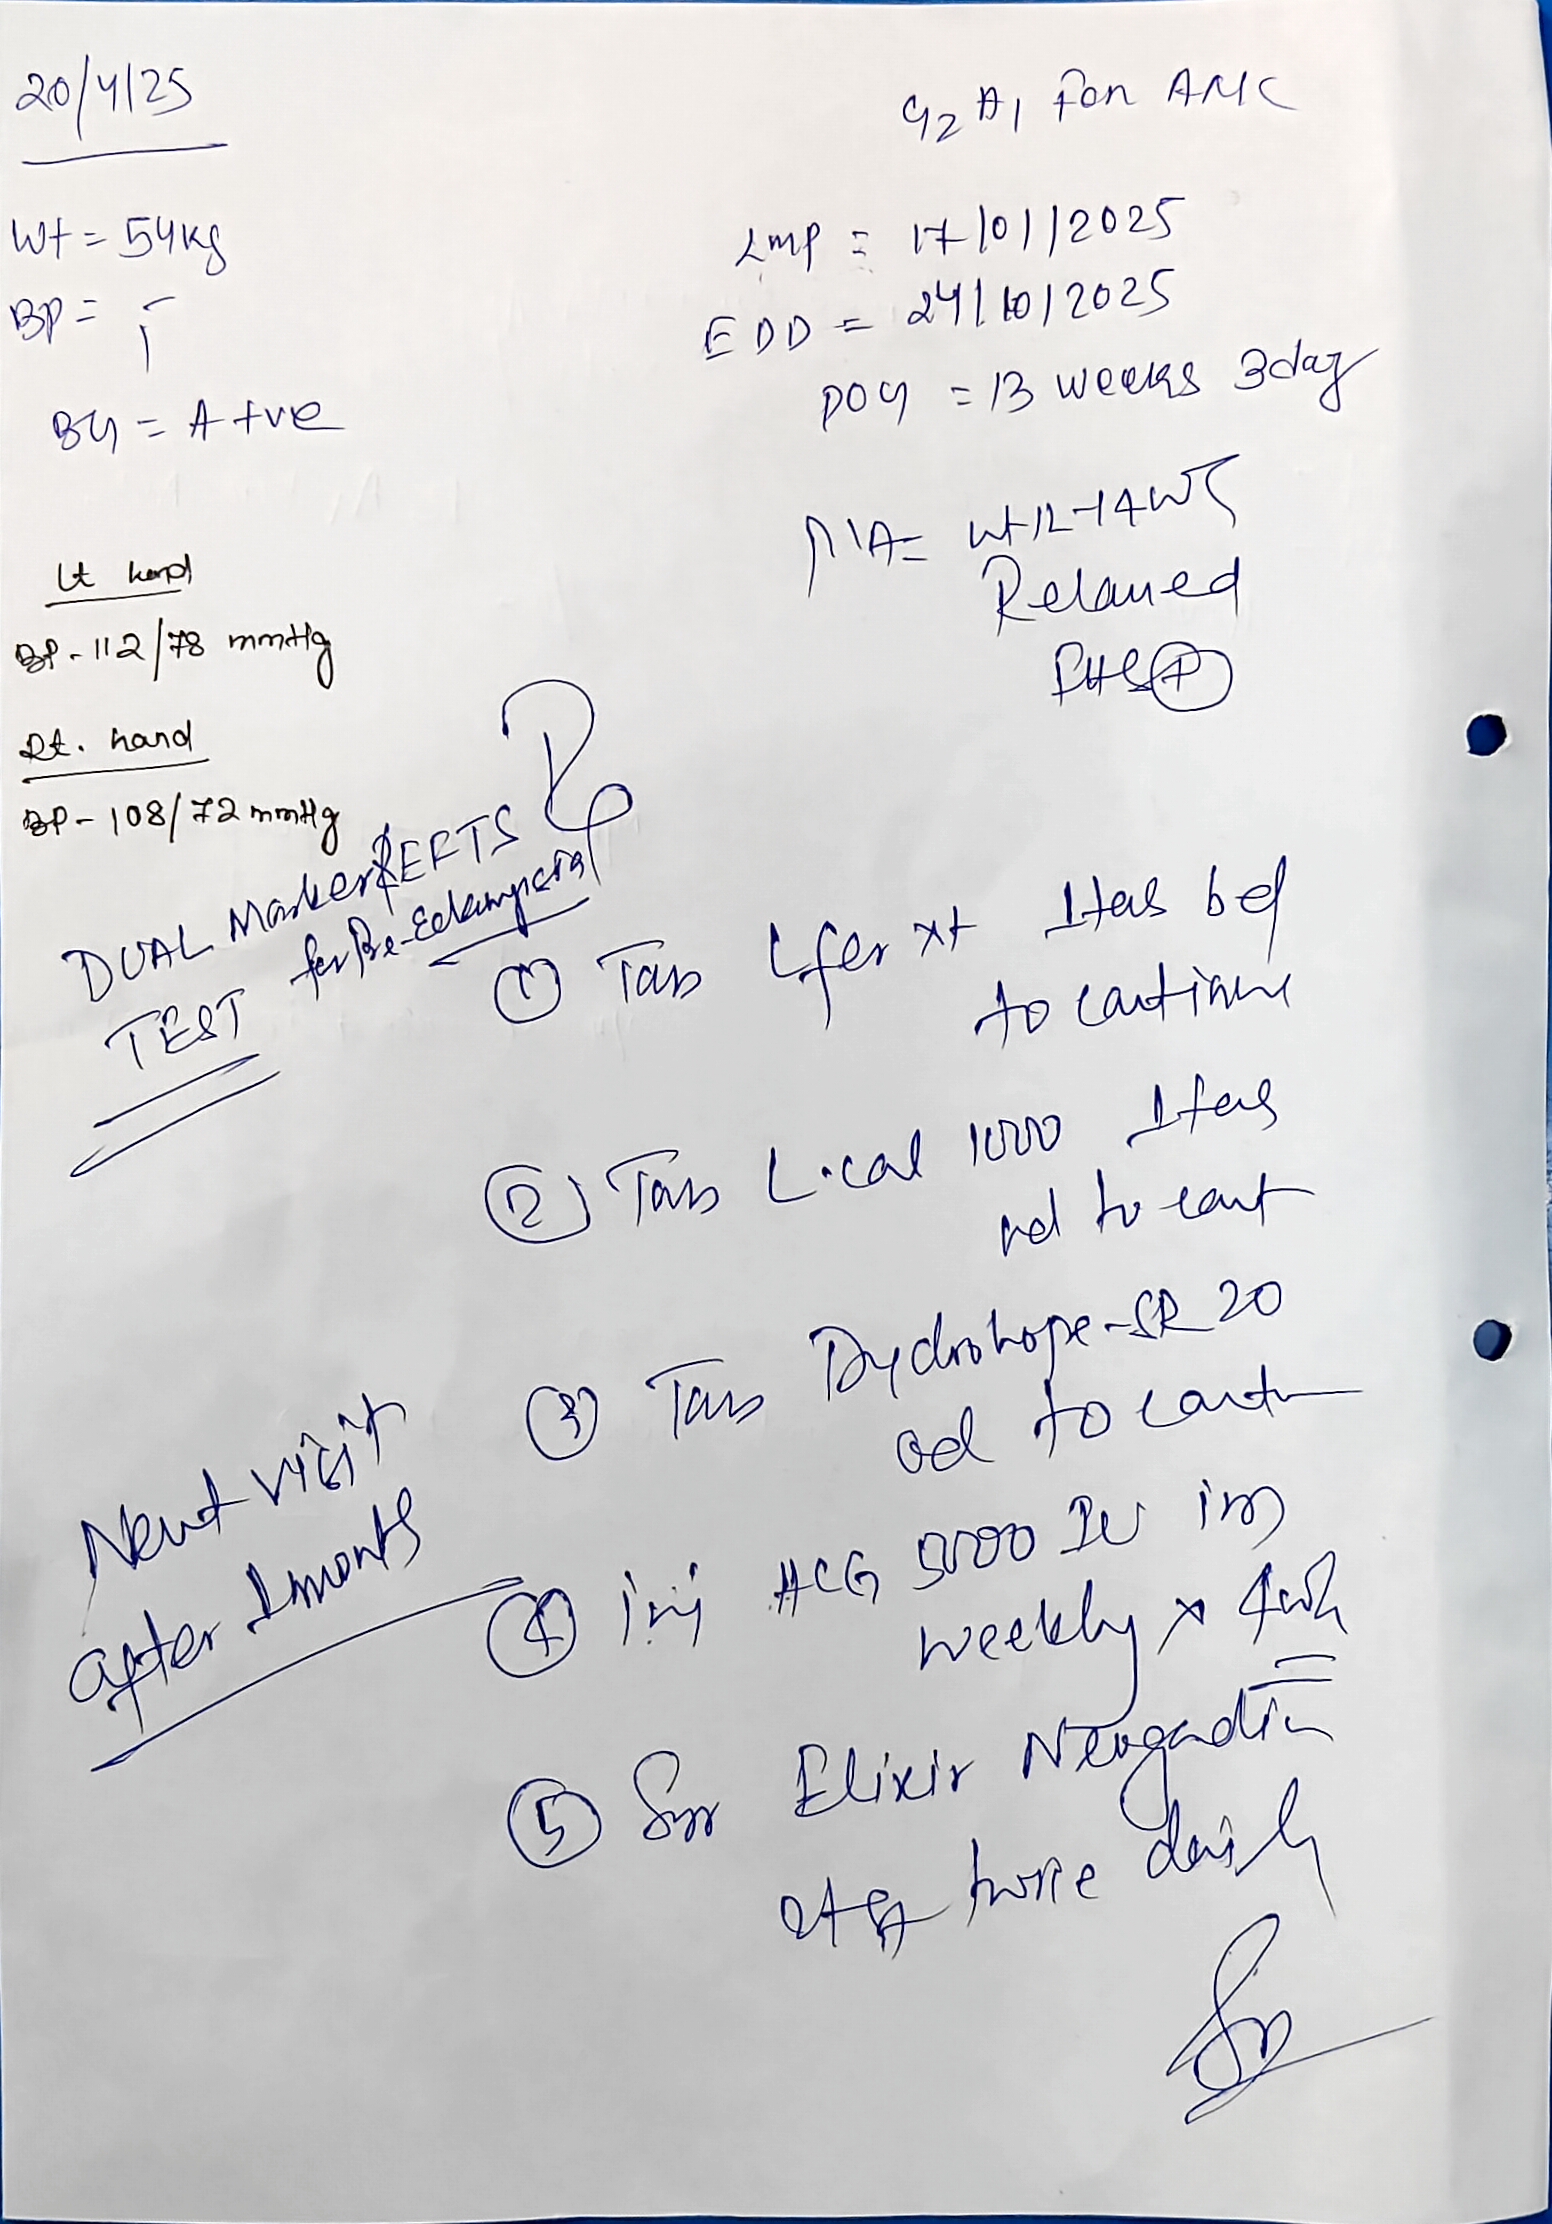 20/4/25
G2 A1 for ANC
Wt = 54kg
BP =
BG = A +ve
LMP = 17/01/2025
EDD = 24/10/2025
POG = 13 weeks 3day
P/A = ut 12-14wk
Relaxed
FHS (+)
Lt hand
BP - 112/78 mmHg
Rt. hand
BP - 108/72 mmHg
DUAL Marker
TEST for Pre-Eclampsia
① Tab Lfer xt 1tab
to continue
② Tab L-cal 1000 1tab
to cont
③ Tab Dydrohope-SR 20
od to cont
④ inj HCG 5000 IU im
weekly x 4wk
⑤ Syr Elixir Neogadin
2tsf twice daily
Next visit
after 1month